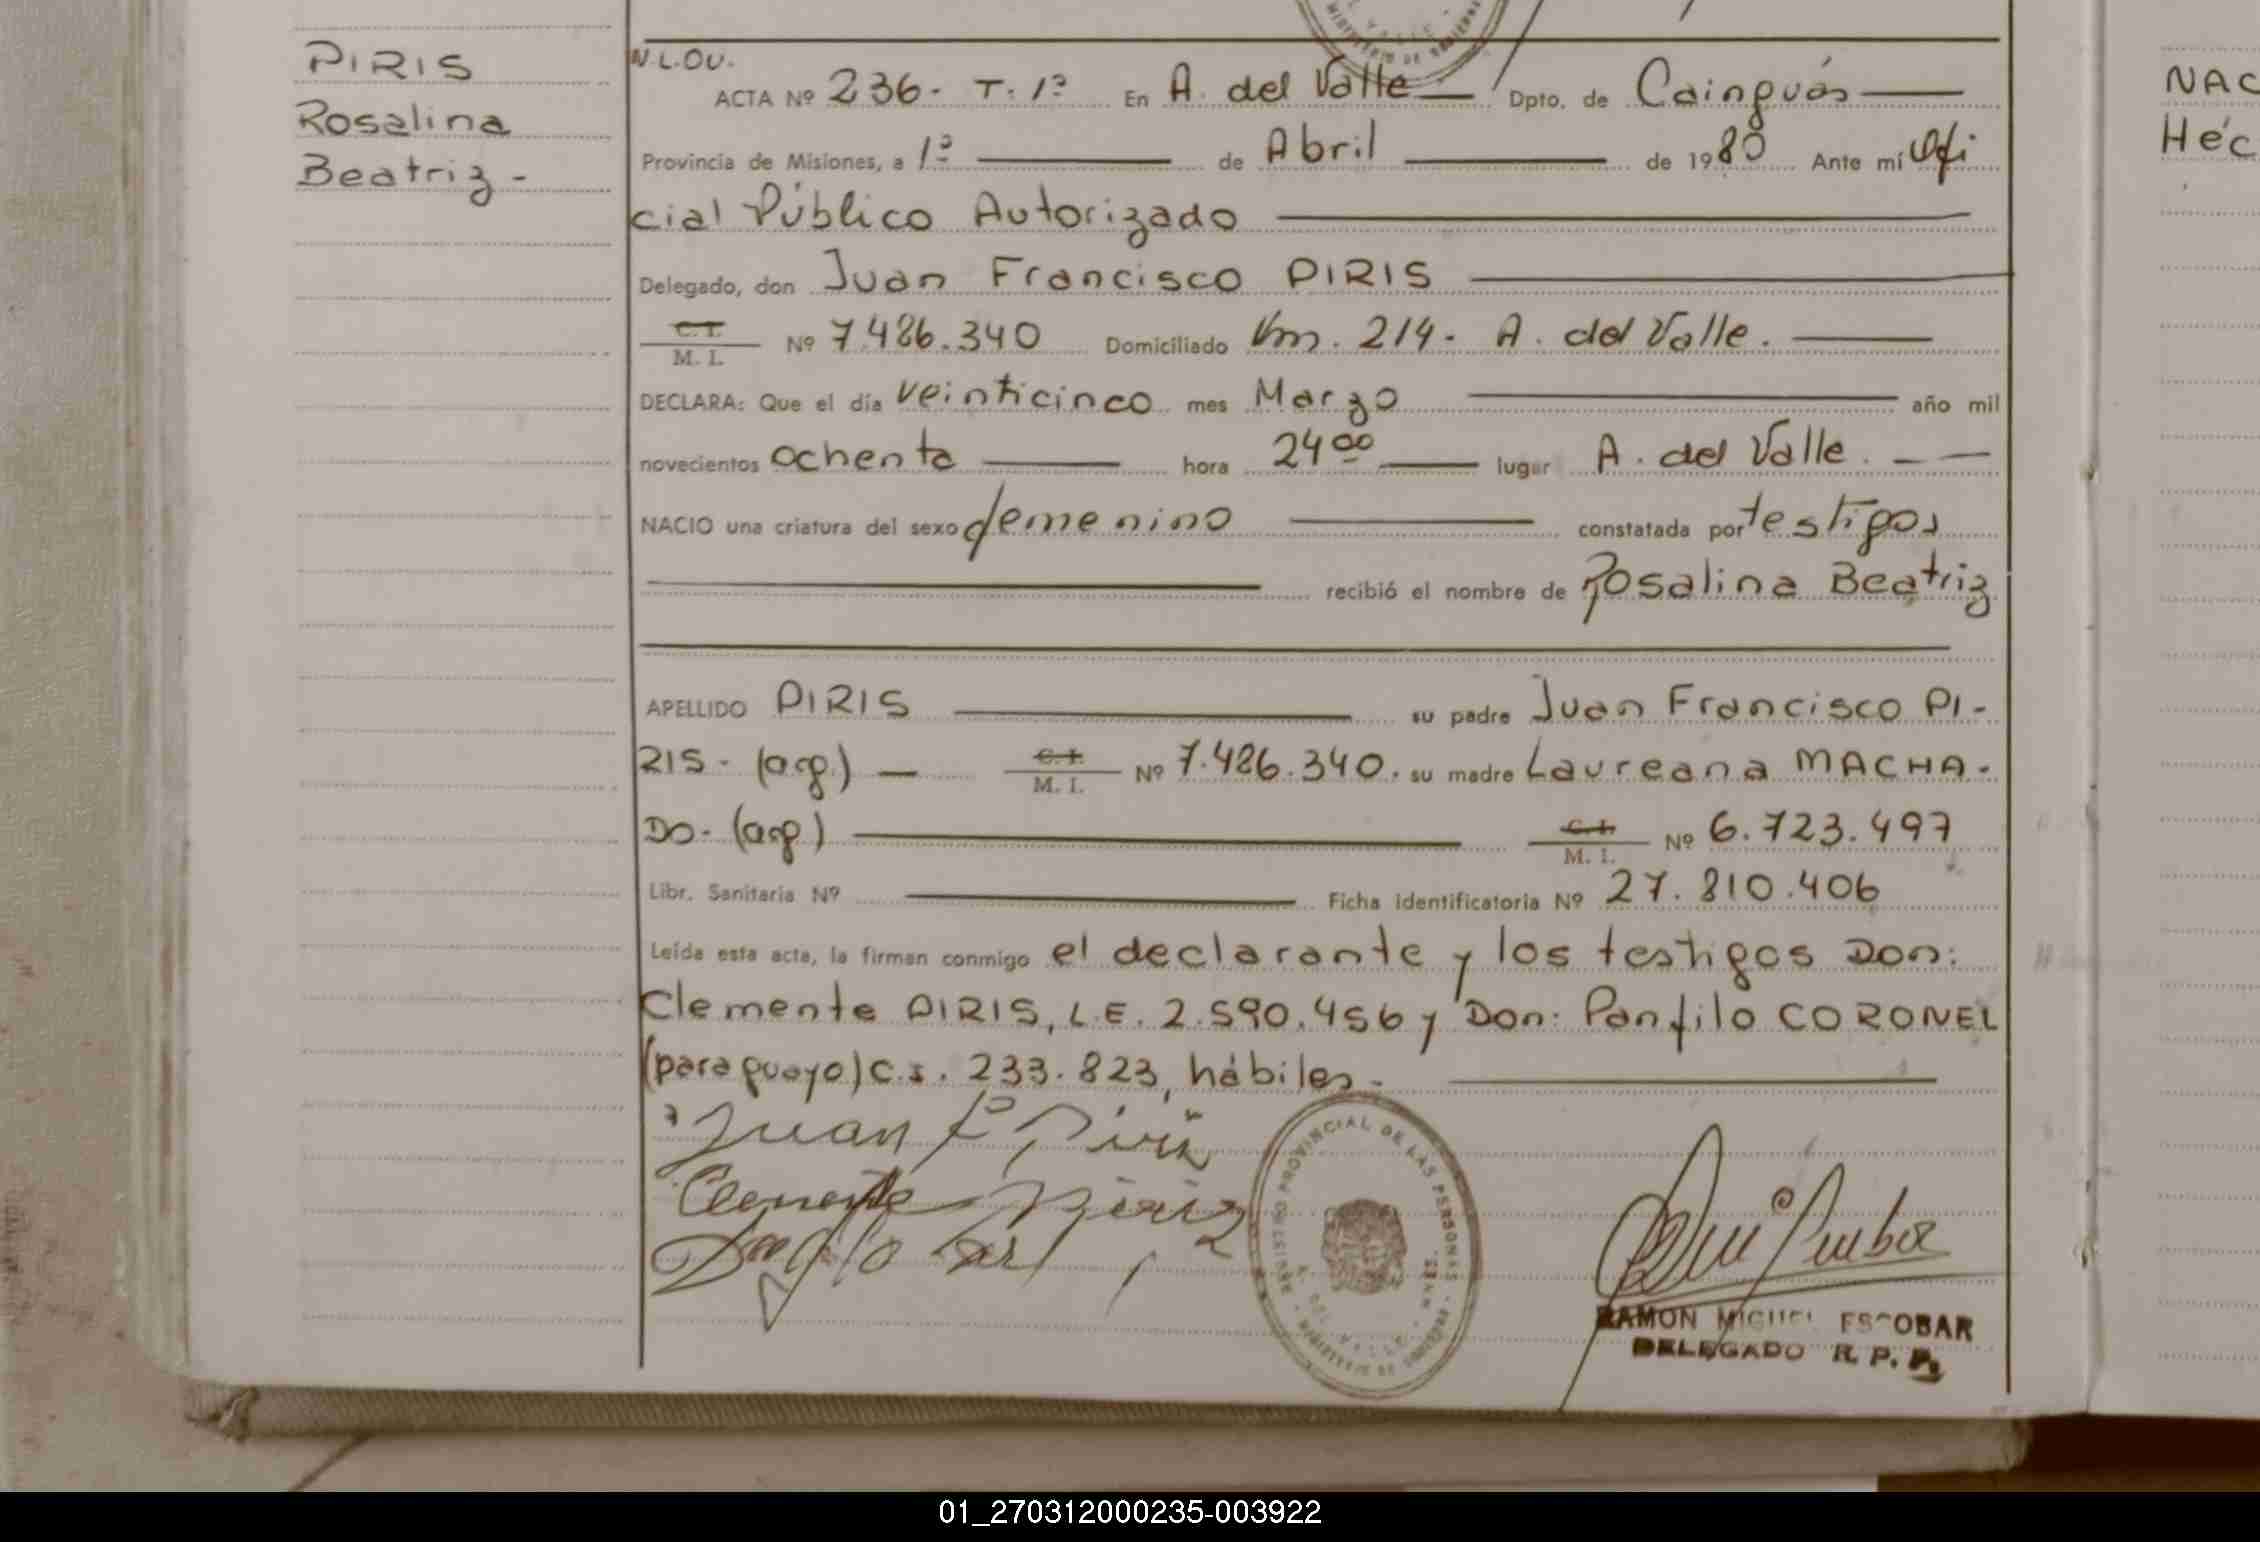 PIRIS
Rosalina
Beatriz -
N.L.OU.
ACTA Nº 236. T. 1º En A. del Valle Dpto. de Cainguás
Provincia de Misiones, a 1º de Abril de 1980 Ante mí Ofi
cial Público Autorizado
Delegado, don Juan Francisco PIRIS
C. I. M. I. Nº 7.486.340 Domiciliado Km. 214. A. del Valle.
DECLARA: Que el día veinticinco mes Marzo año mil
novecientos ochenta hora 24 00 lugar A. del Valle.
NACIO una criatura del sexo femenino constatada por testigos
recibió el nombre de Rosalina Beatriz
APELLIDO PIRIS su padre Juan Francisco PI-
RIS - (arg.) C. I. M. I. Nº 7.486.340. su madre Laureana MACHA-
DO - (arg.) C. I. M. I. Nº 6.723.497
Libr. Sanitaria Nº Ficha Identificatoria Nº 27.810.406
Leída esta acta, la firman conmigo el declarante y los testigos Don:
Clemente PIRIS, L.E. 2.590.456 y Don: Panfilo CORONEL
(paraguayo) C.I. 233.823, hábiles -
Juan F Piris
Clemente Piriz
REGISTRO PROVINCIAL DE LAS PERSONAS
A. DEL VALLE
MINISTERIO DE GOBIERNO
RAMON MIGUEL ESCOBAR
DELEGADO R. P. P.
NAC
Héc
01_270312000235-003922